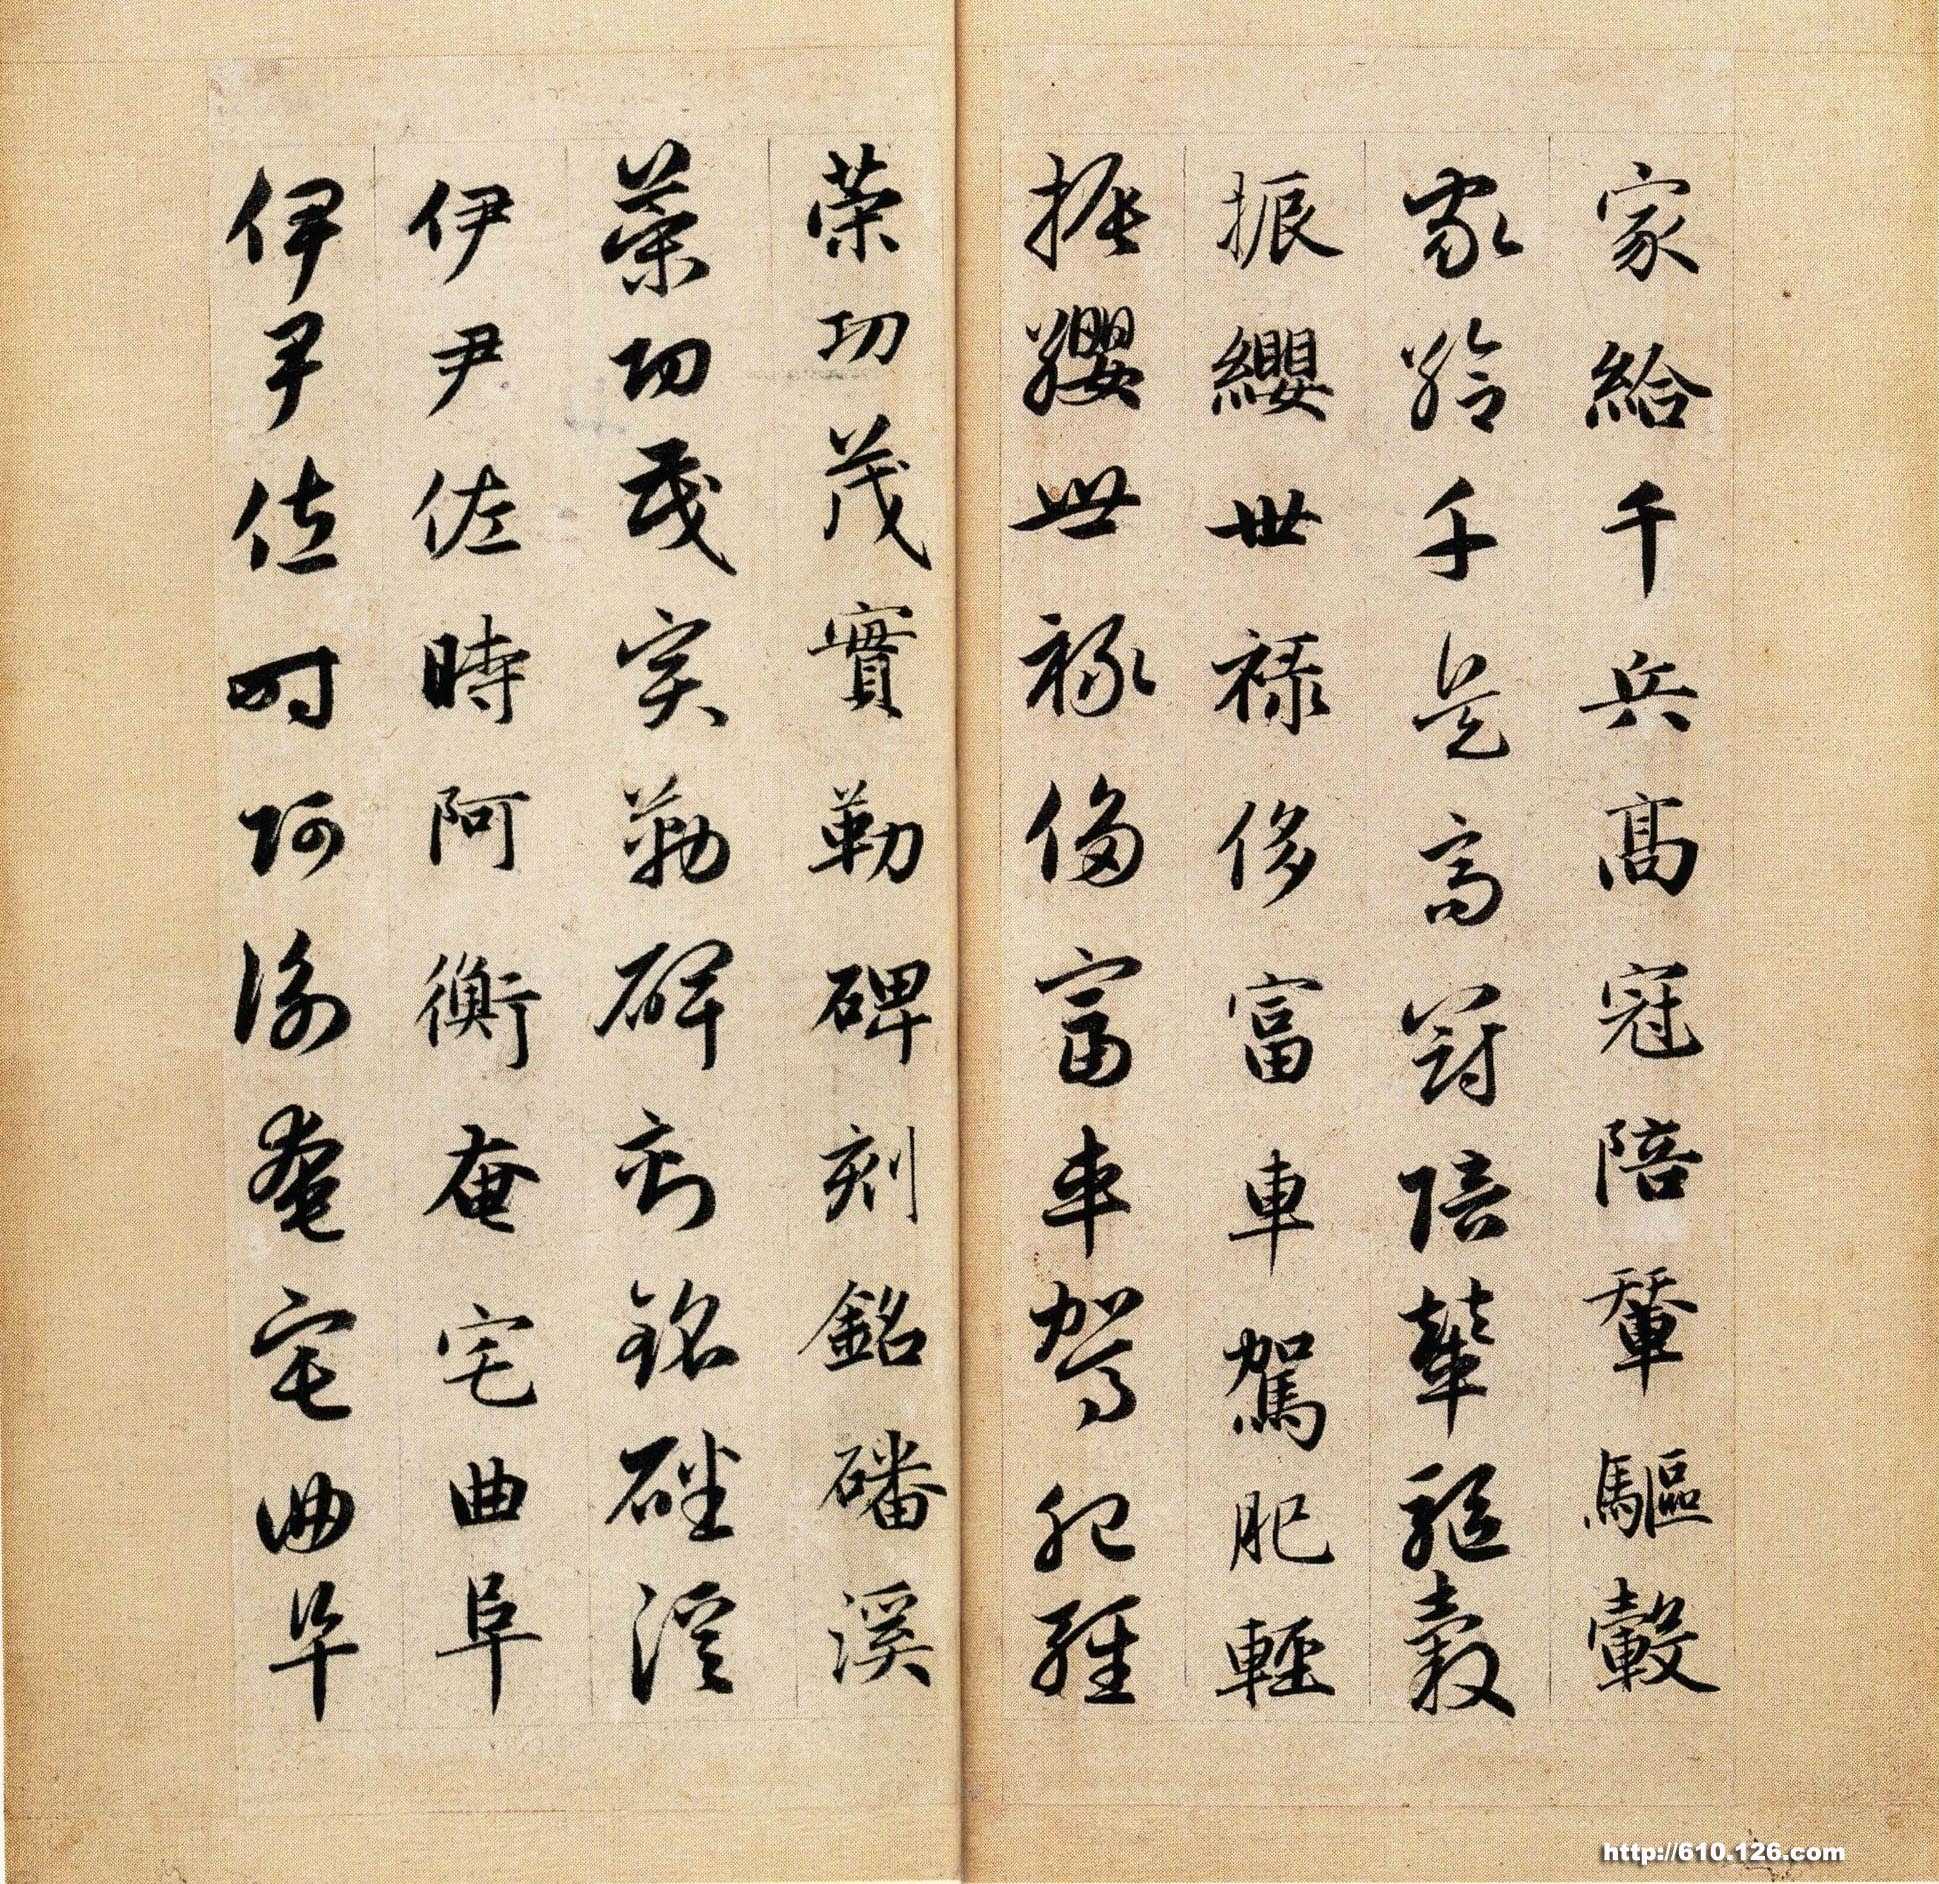 家給千兵高冠陪輦驅轂
家給千兵高冠陪輦驅轂
振纓世禄侈富車駕肥輕
振纓世禄侈富車駕肥輕
策功茂實勒碑刻銘磻溪
策功茂實勒碑刻銘磻溪
伊尹佐時阿衡奄宅曲阜
伊尹佐時阿衡奄宅曲阜
http://610.126.com